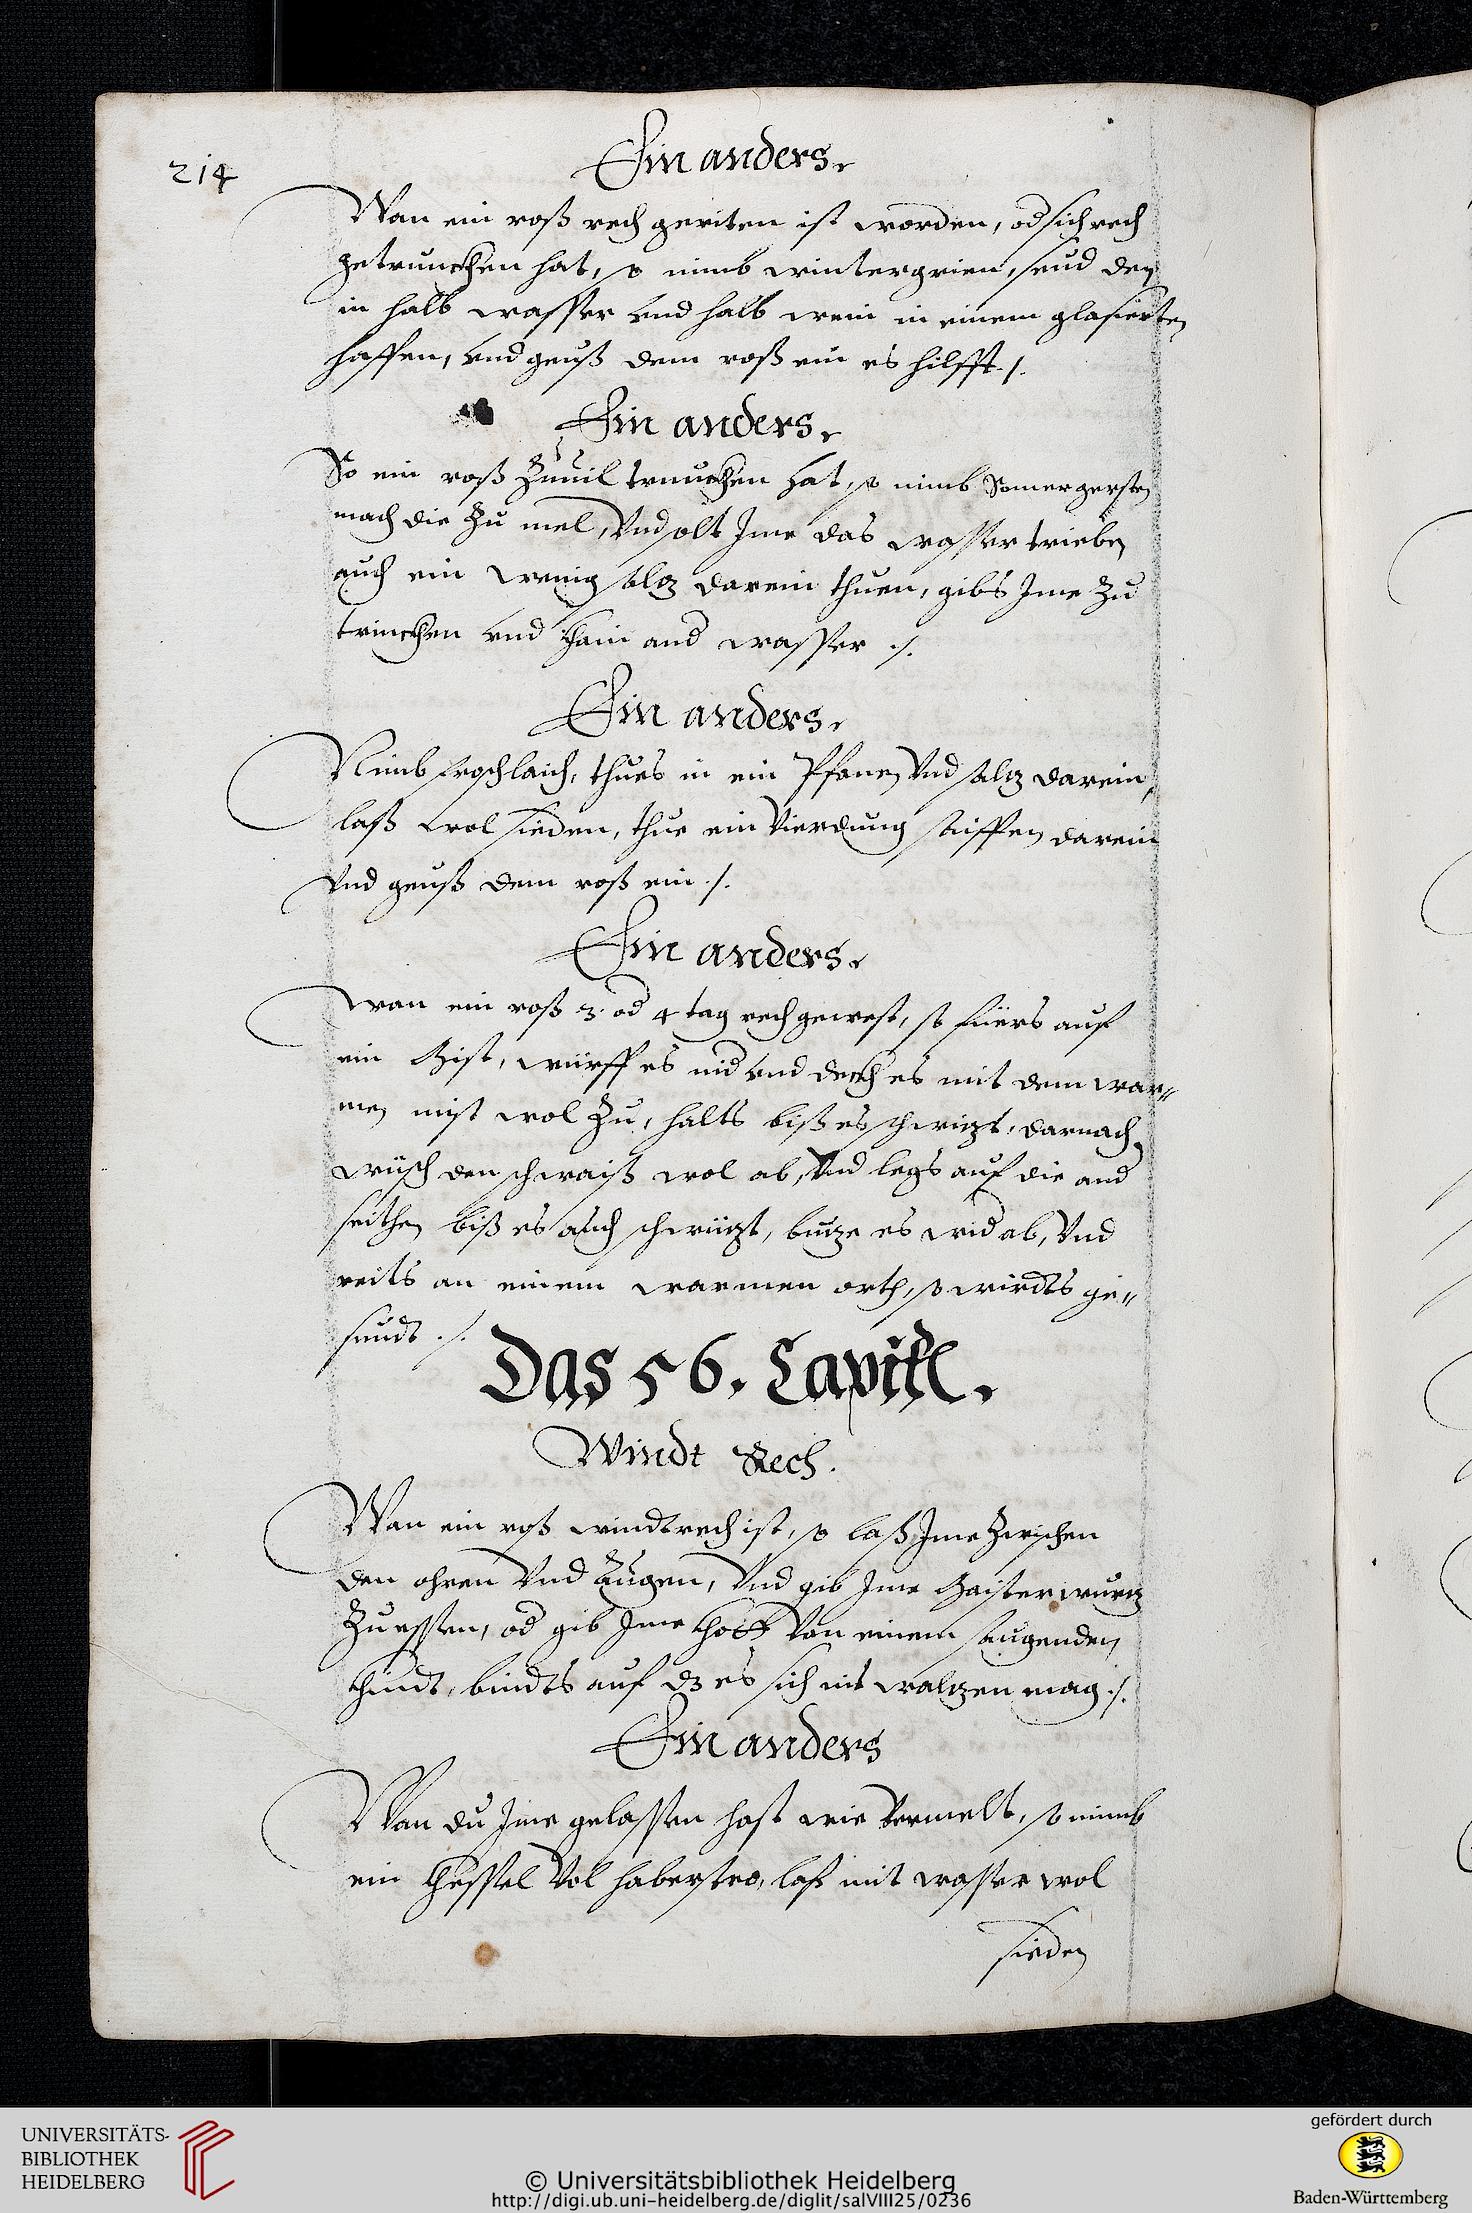 214
Ein anders.
Wan ein roß rech geriten ist worden, od sich rech
getrunckhen hat, so nimb wintergrien, seud den
in halb wasser vnd halb wein in einem glasierten
haffen, vnd geuß dem roß ein es hilfft ./.
Ein anders.
So ein roß Zuuil trunckhen hat, so nimb Somergersten
mach die Zu mel, Vnd solt Ime das wasser trieben
auch ein wenig saltz darein thuen, gibs Ime Zu
trinckhen vnd khain and wasser ./.
Ein anders.
Nimb froschlaich, thues in ein Pfanen Vnd saltz darein,
laß wol sieden, thue ein Vierdung saiffen darein
Vnd geuß dem roß ein ./.
Ein anders.
wan ein roß 3 od 4 tag rech gewest, so füers auf
ein Mist, würff es nid vnd deckh es mit dem war=
men mist wol Zu, halts biß es schwizt, darnach
wüsch den schwaiß wol ab, Vnd legs auf die and
seithen biß es auch schwüzt, buze es wid ab, Vnd
reits an einem warmen orth, so wirdts ge=
sundt ./.
Das 56. Capitl.
Windt Rech.
Wan ein roß windtrech ist, so laß Ime Zwischen
den ohren Vnd Augen, Vnd gib Ime Maisterwurtz
Zu essen, od gib Ime khott Von einem saugenden
khindt, bindts auf dz es sich nit waltzen mag ./.
Ein anders
Wan du Ime gelassen hast wie Vermelt, so nimb
ein khessel Vol haberstro, laß mit wasser wol
sieden
UNIVERSITÄTS-
BIBLIOTHEK
HEIDELBERG
© Universitätsbibliothek Heidelberg
http://digi.ub.uni-heidelberg.de/diglit/salVIII25/0236
gefördert durch
Baden-Württemberg